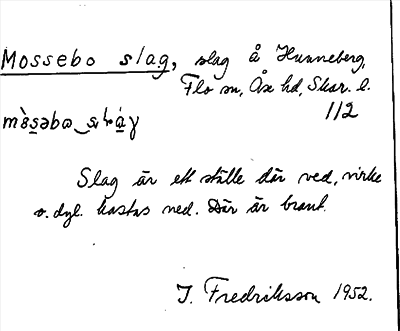 Mossebo slag, slag å Hunneberg,
Flo sn, Åse hd, Skar. l.
112
Slag är ett ställe där ved, virke
o. dyl. kastas ned. Där är brant.
I. Fredriksson 1952.